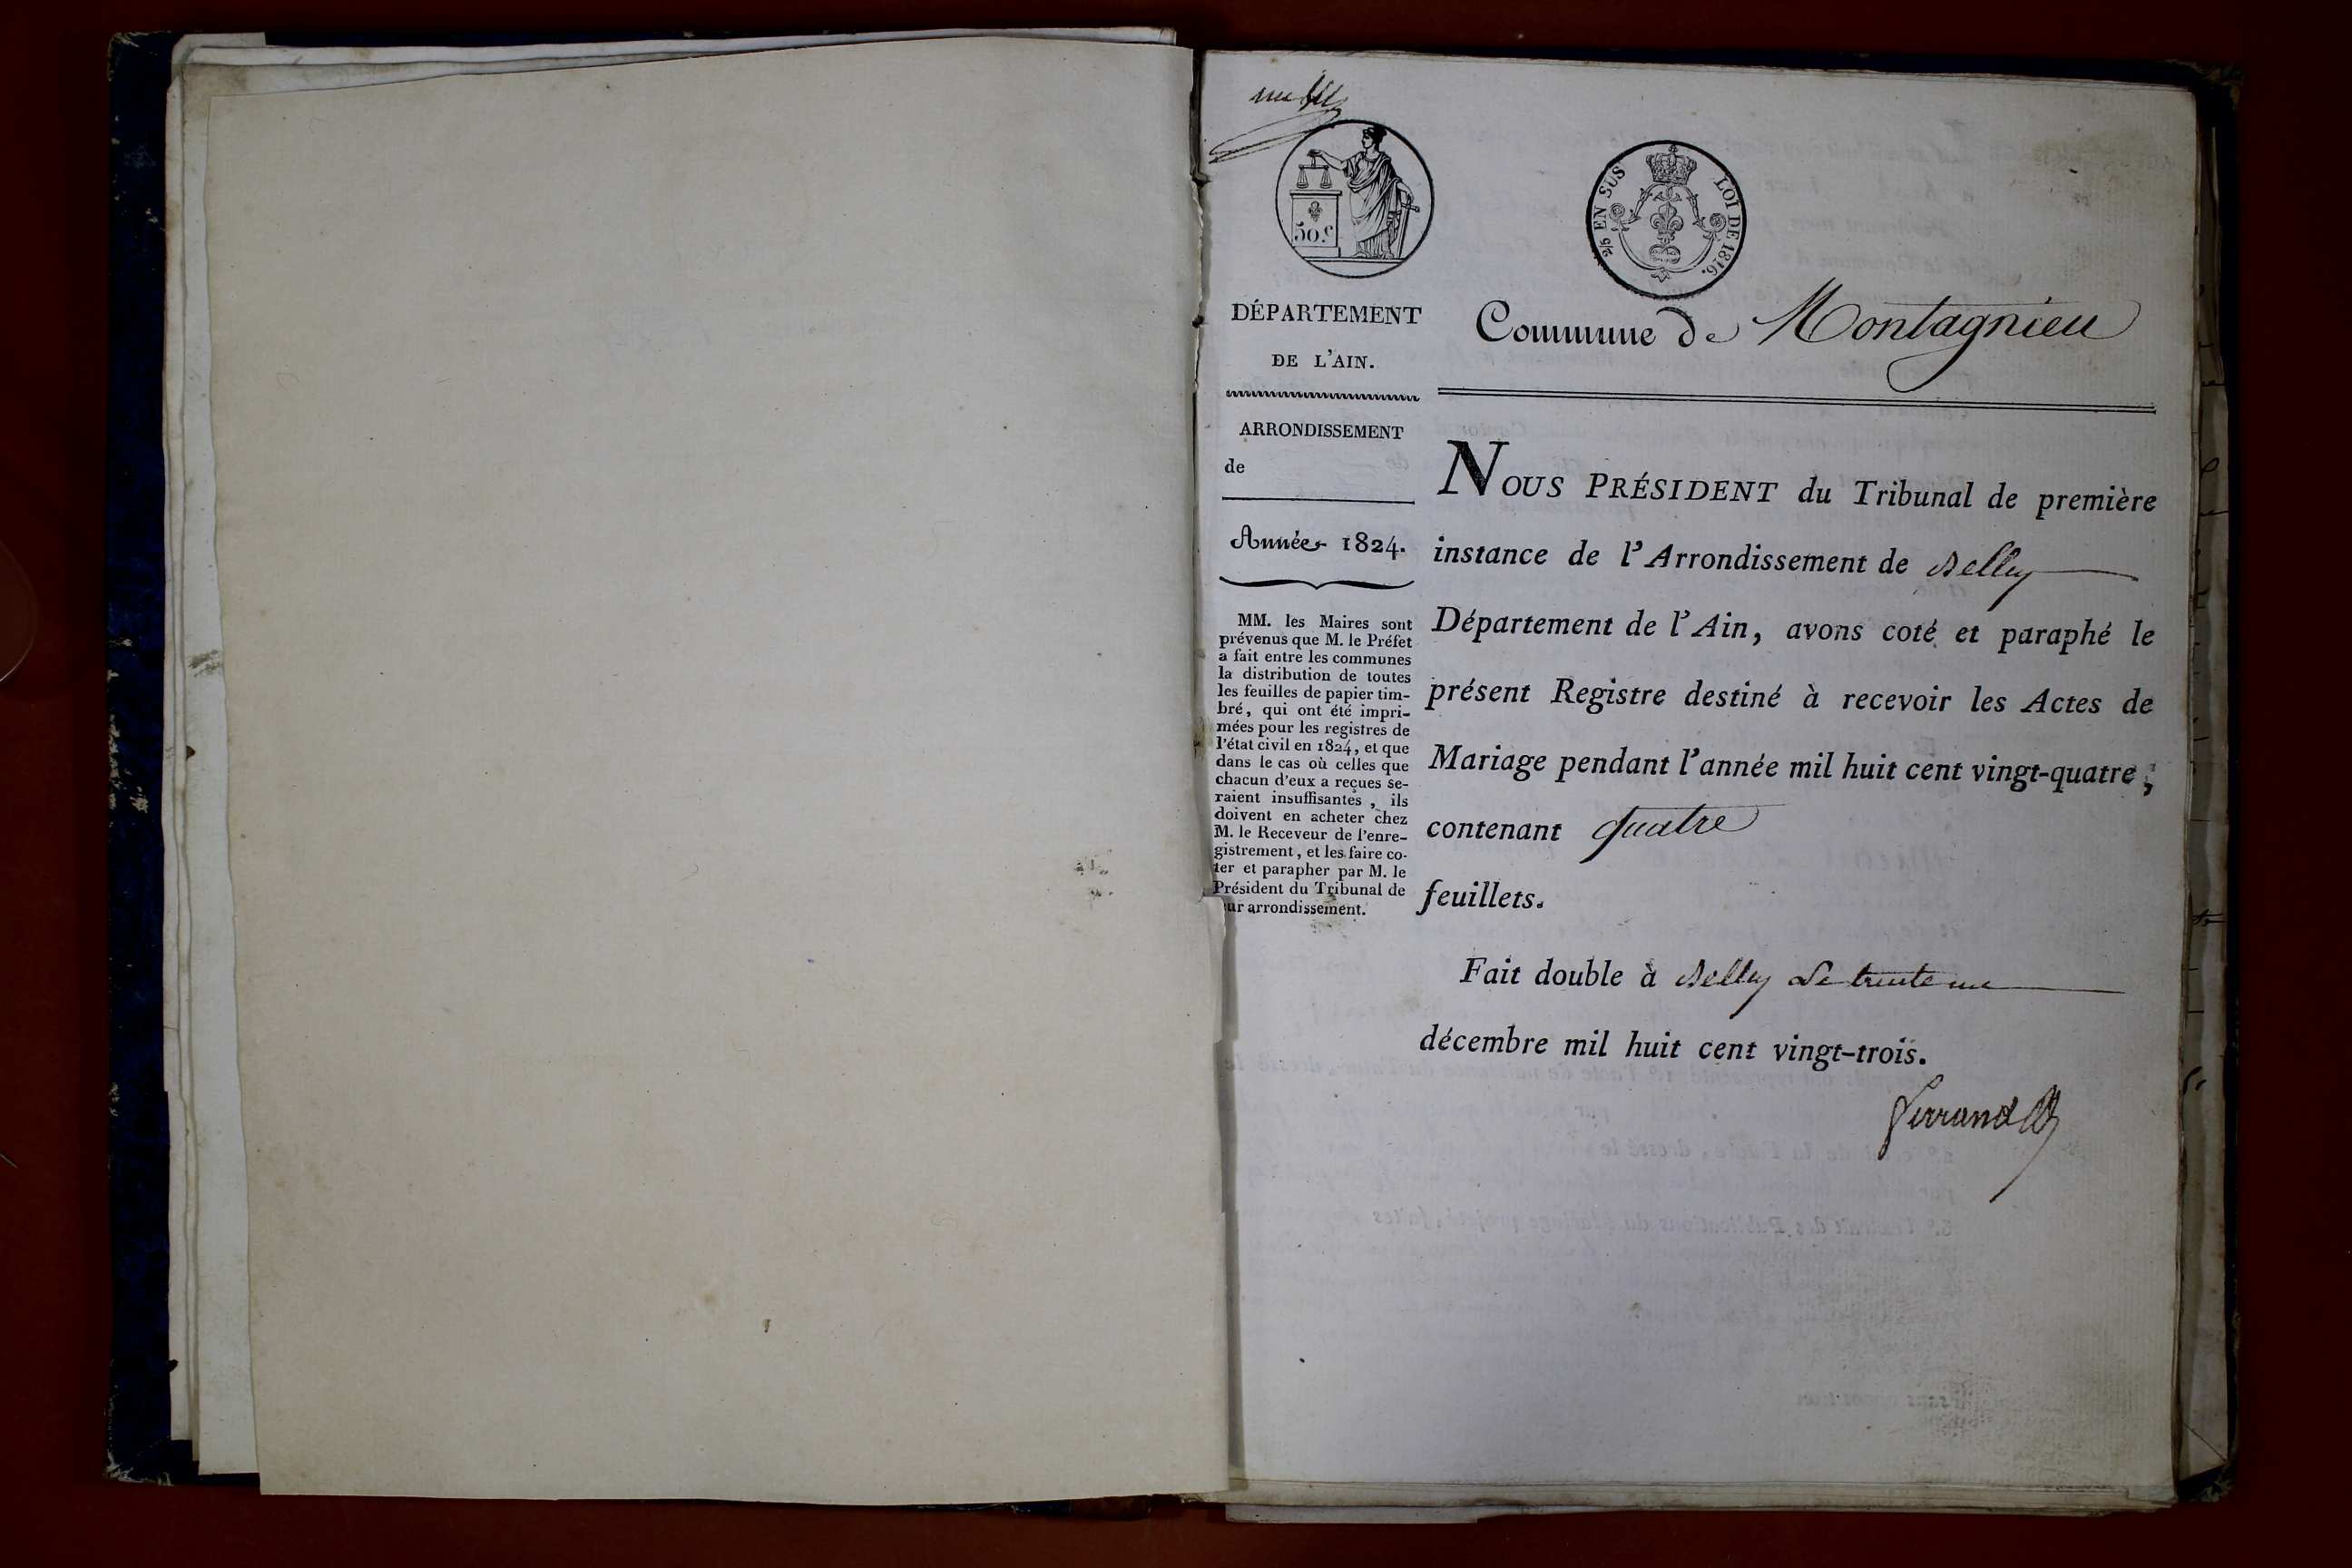 50.c
2/5 EN SUS LOI DE 1816.
DÉPARTEMENT
DE L'AIN.
Commune de Montagnieu
ARRONDISSEMENT
de
Année 1824.
MM. les Maires sont
prévenus que M. le Préfet
a fait entre les communes
la distribution de toutes
les feuilles de papier tim-
bré, qui ont été impri-
mées pour les registres de
l'état civil en 1824, et que
dans le cas où celles que
chacun d'eux a reçues se-
raient insuffisantes, ils
doivent en acheter chez
M. le Receveur de l'enre-
gistrement, et les faire co-
ter et parapher par M. le
Président du Tribunal de
leur arrondissement.
NOUS PRÉSIDENT du Tribunal de première
instance de l'Arrondissement de Belley
Département de l'Ain, avons coté et paraphé le
présent Registre destiné à recevoir les Actes de
Mariage pendant l'année mil huit cent vingt-quatre;
contenant quatre
feuillets.
Fait double à Belley le trente un
décembre mil huit cent vingt-trois.